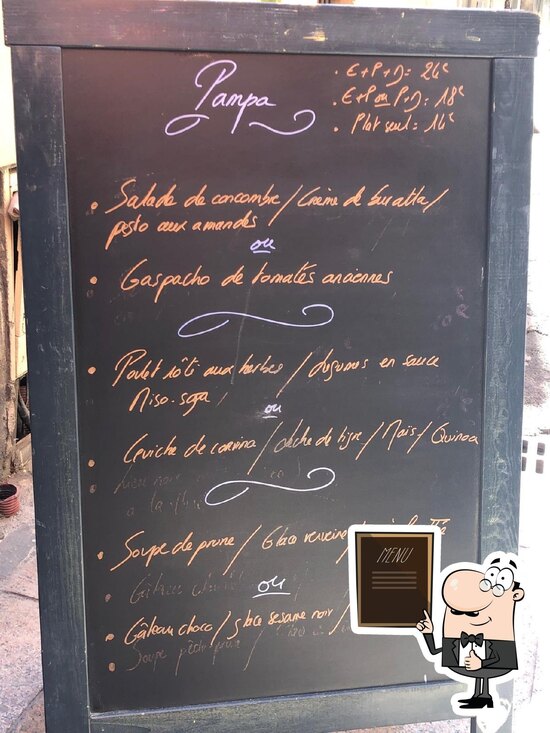 Pampa
. E+P+D = 24€
. E+P ou P+D = 18€
. Plat seul = 14€
• Salade de concombre / Crème de buratta /
pesto aux amandes
ou
• Gaspacho de tomates anciennes
• Poulet rôti aux herbes / légumes en sauce
Miso-soja
ou
• Ceviche de corvina / leche de tigre / Maïs / Quinoa
• Soupe de prune / Glace verveine /
ou
• Gâteau choco / glace sesame noir /
• Soupe
MENU